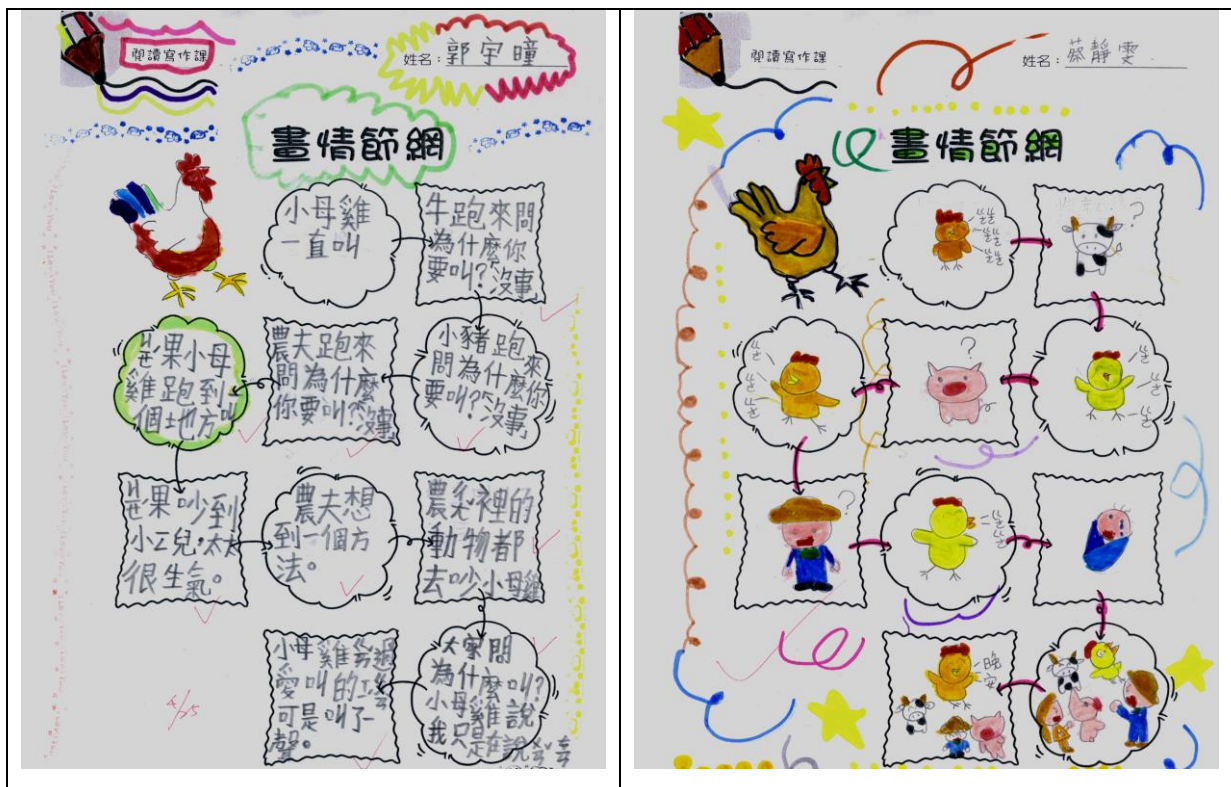 閱讀寫作課
姓名：郭宇曈
畫情節網
小母雞
一直叫
牛跑來問
為什麼你
要叫?沒事
小豬跑來
問為什麼你
要叫?沒事
農夫跑來
問為什麼
你要叫?沒事
ㄐㄧㄝ果小母
雞跑到
個地方叫
ㄐㄧㄝ果吵到
小ㄥ兒,太太
很生氣。
農夫想
到一個方
法。
農ㄔㄤ裡的
動物都
去吵小母雞
大家問
為什麼叫?
小母雞說
我只是在說
小母雞
愛叫的
可是叫了一
聲。
4/25
閱讀寫作課
姓名：蔡靜雯
畫情節網
ㄍㄜ
ㄍㄜ
ㄍㄜ
ㄍㄜ
ㄍㄜ
?
ㄍㄜ
ㄍㄜ
ㄍㄜ
?
ㄍㄜ
ㄍㄜ
ㄍㄜ
?
ㄍㄜ
ㄍㄜ
ㄍㄜ
晚安